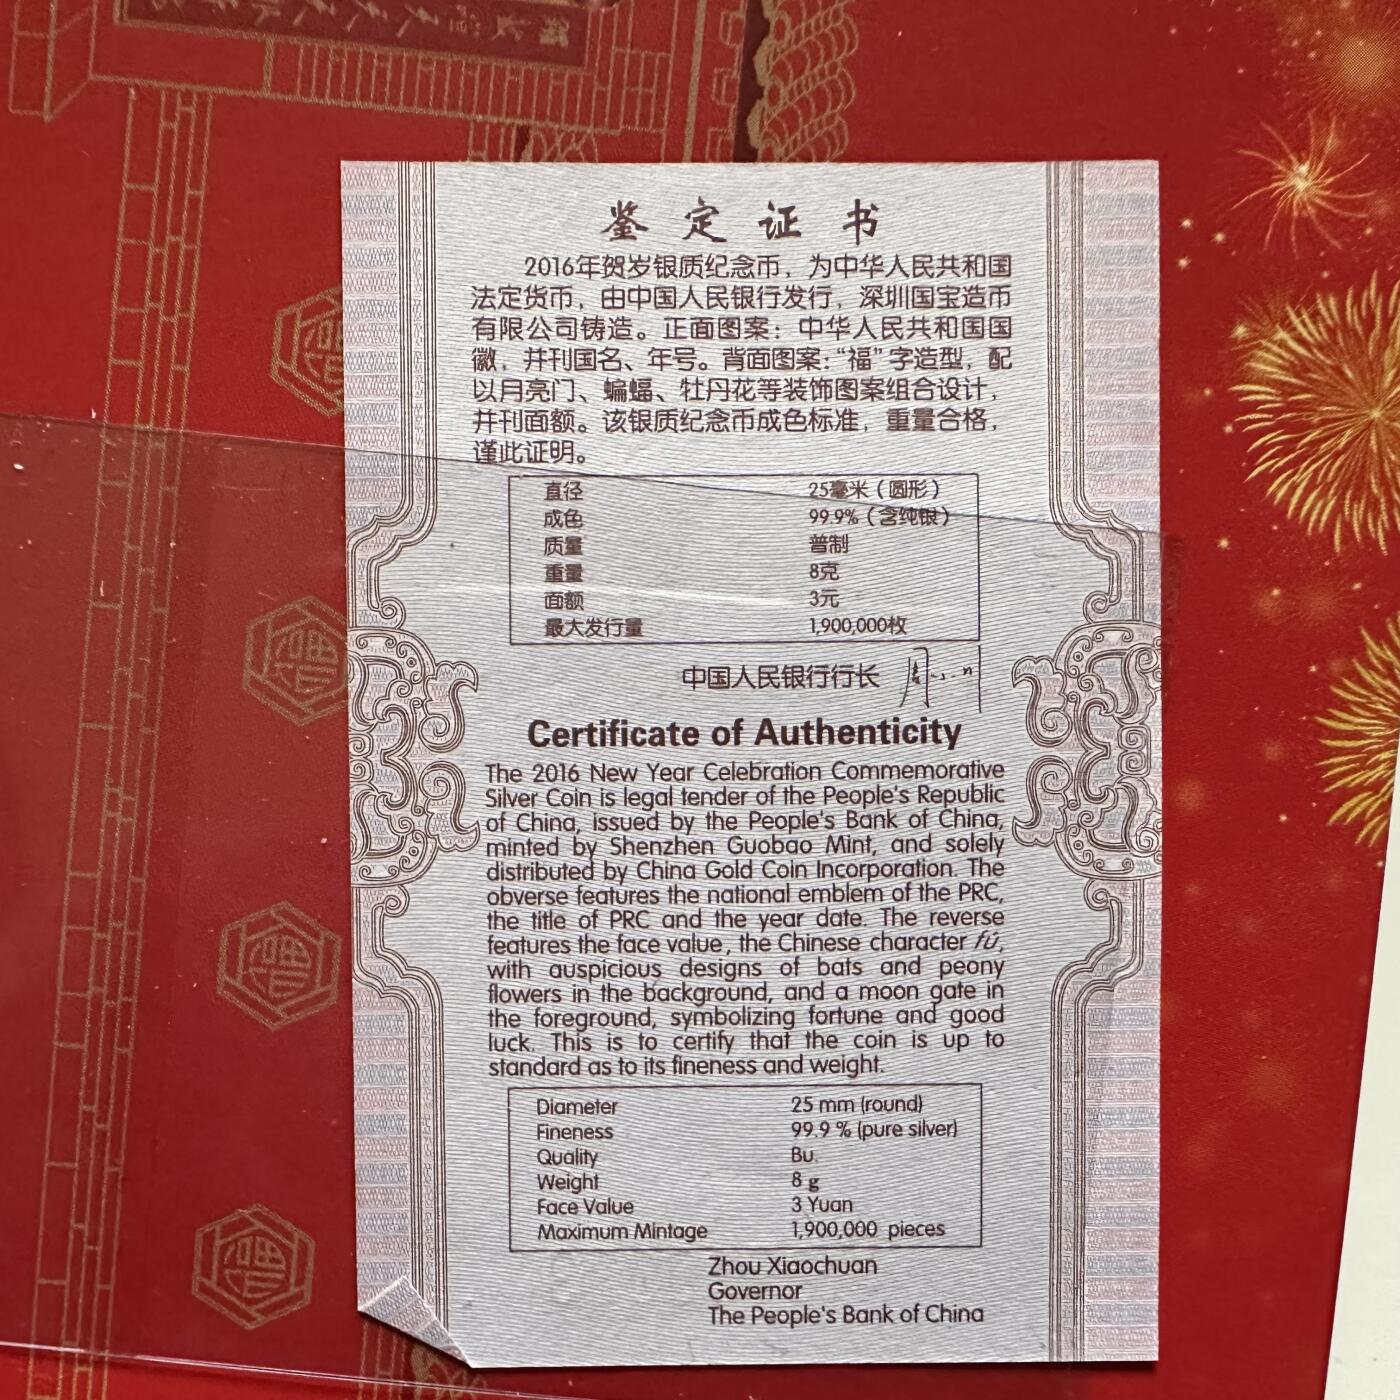 鉴定证书
2016年贺岁银质纪念币，为中华人民共和国
法定货币，由中国人民银行发行，深圳国宝造币
有限公司铸造。正面图案：中华人民共和国国
徽，并刊国名、年号。背面图案：“福”字造型，配
以月亮门、蝙蝠、牡丹花等装饰图案组合设计，
并刊面额。该银质纪念币成色标准，重量合格，
谨此证明。
直径 25毫米（圆形）
成色 99.9%（含纯银）
质量 普制
重量 8克
面额 3元
最大发行量 1,900,000枚
中国人民银行行长 周小川
Certificate of Authenticity
The 2016 New Year Celebration Commemorative
Silver Coin is legal tender of the People's Republic
of China, issued by the People's Bank of China,
minted by Shenzhen Guobao Mint, and solely
distributed by China Gold Coin Incorporation. The
obverse features the national emblem of the PRC,
the title of PRC and the year date. The reverse
features the face value, the Chinese character fú,
with auspicious designs of bats and peony
flowers in the background, and a moon gate in
the foreground, symbolizing fortune and good
luck. This is to certify that the coin is up to
standard as to its fineness and weight.
Diameter 25 mm (round)
Fineness 99.9 % (pure silver)
Quality Bu.
Weight 8 g
Face Value 3 Yuan
Maximum Mintage 1,900,000 pieces
Zhou Xiaochuan
Governor
The People's Bank of China